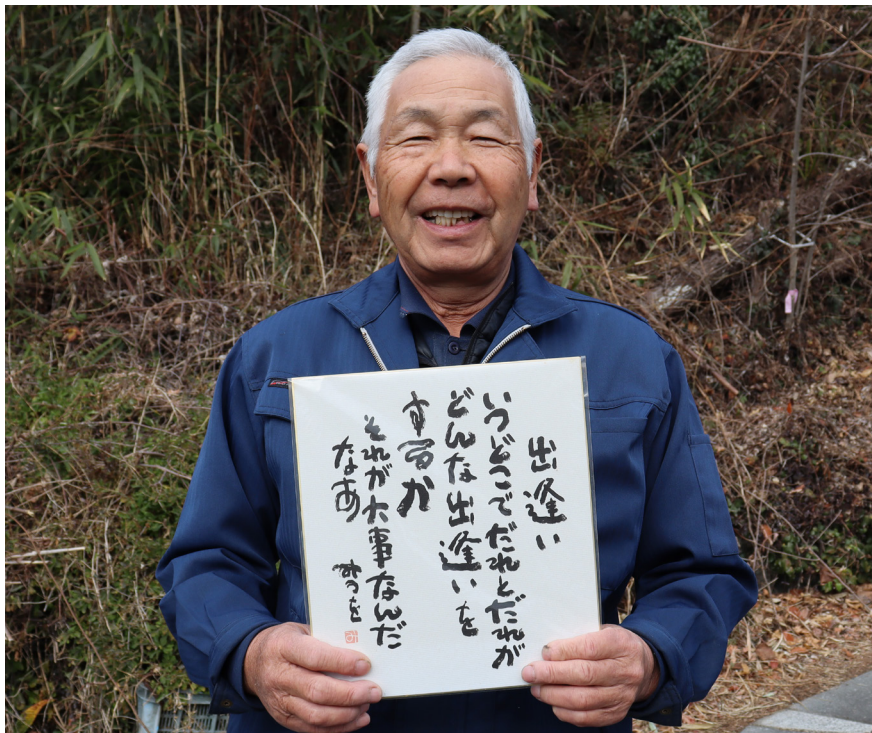 出逢い
いつどこでだれとだれが
どんな出逢いを
するか
それが大事なんだ
なあ
みつを